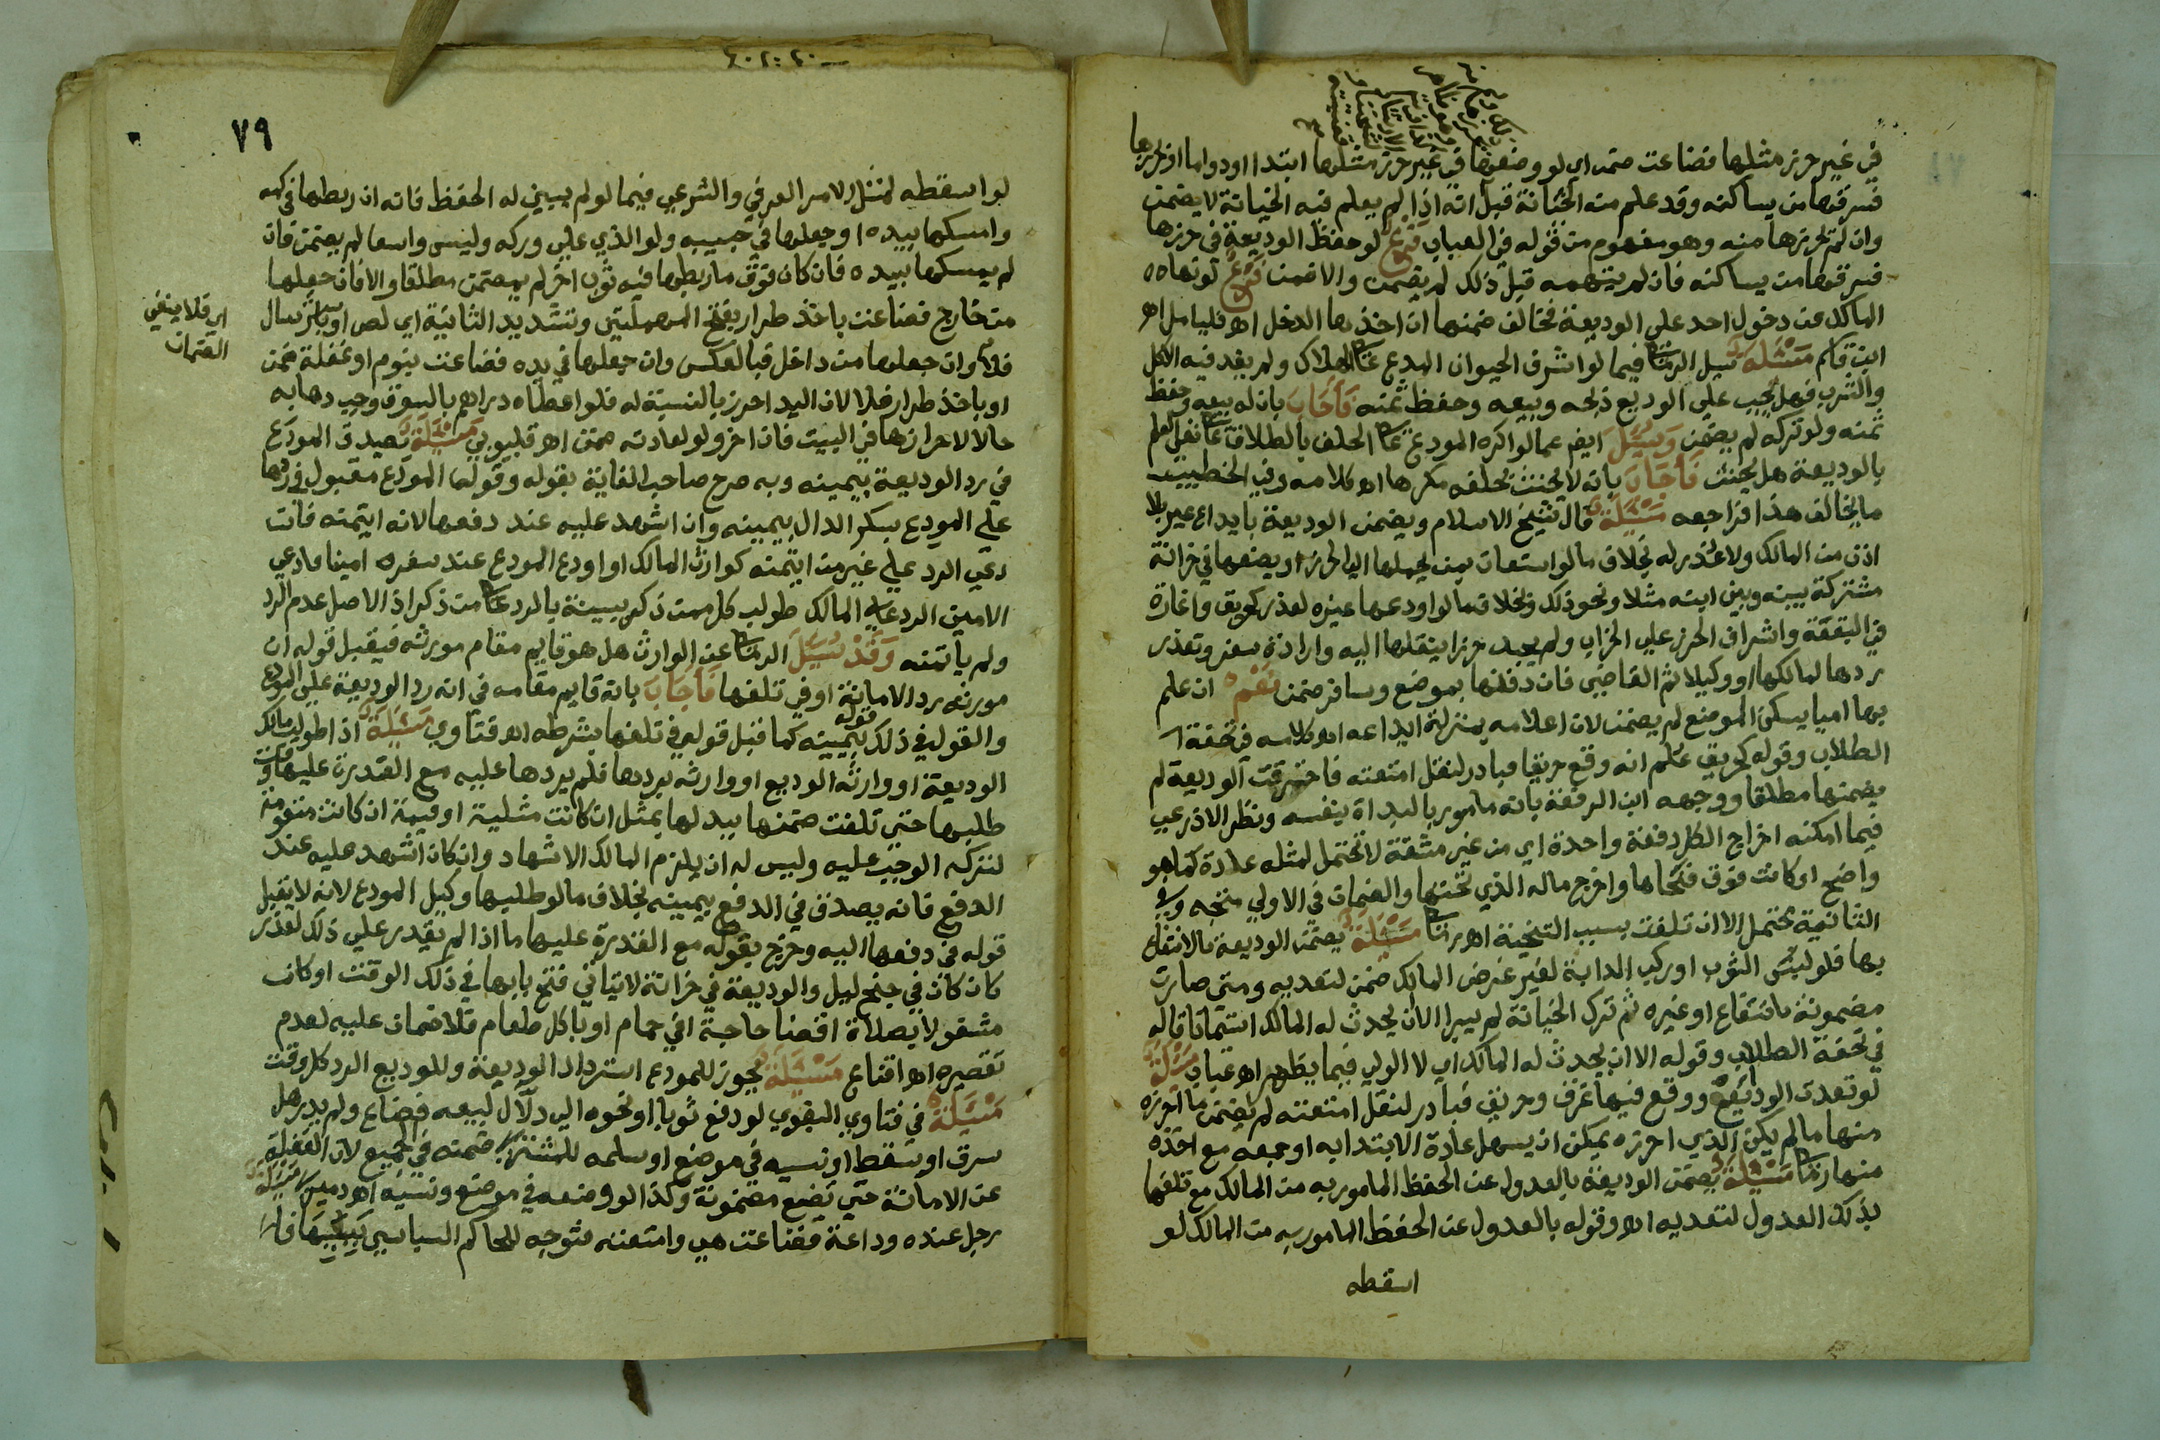 في غير حرز مثلها فضاعت ضمن اي لو وضعها في غير حرز مثلها ابتدا او دواما او حرزها
فسرقها من يساكنه وقد علم منه الخيانة قبل انه اذا لم يعلم فيه الخيانة لا يضمن
وان لم يحرزها منه وهو مفهوم من قوله في العباب فرع لو حفظ الوديعة في حرزها
فسرقها من يساكنه فان لم يتهمه قبل ذلك لم يضمن والا ضمن فرع لو نهاه
المالك عن دخول احد على الوديعة فخالف ضمنها ان اخذها الداخل اه فليتامل اه
ابن قاسم مسئلة سيل الرملي فيما لو اشرف الحيوان المدع على الهلاك ولم يفد فيه الاكل
والشرب فهل يجب على الوديع ذبحه وبيعه وحفظ ثمنه فاجاب بان له بيعه وحفظ
ثمنه ولو تركه لم يضمن وسيل ايض عما لو اكره المودع على الحلف بالطلاق على نفي العلم
بالوديعة هل يحنث فاجاب بانه لا يحنث بحلفه مكرها اه كلامه وفي الخطيب
ما يخالف هذا فراجعه مسئلة قال شيخ الاسلام ويضمن الوديعة بايداع غير بلا
اذن من المالك ولا عذر له بخلاف ما لو استعان بمن يحملها الى الحرز او يضعها في خزانة
مشتركة بينه وبين ابنه مثلا ونحو ذلك وبخلاف ما لو اودعها غيره لعذر كحريق واغارة
في البقعة واشراف الحرز على الخراب ولم يجد حرزا ينقلها اليه وارادة سفر وتعذر
ردها لمالكها او وكيله ثم القاضي فان دفنها بموضع وسافر ضمن نعم ان علم
بها امينا يسكن الموضع لم يضمن لان اعلامه بمنزلة ايداعه اه كلامه في تحفة
الطلاب وقوله كحريق علم انه وقع حريقا فبادر لنقل امتعته فاحترقت الوديعة لم
يضمنها مطلقا ووجهه ابن الرفعة بانه مامور بالبداة بنفسه ونظر الاذرعي
فيما امكنه اخراج الكل دفعة واحدة اي من غير مشقة لا تحتمل لمثله عادة كما هو
واضح او كانت فوق فنحاها واخرج ماله الذي تحتها والضمان في الاولى متجه وفي
الثانية محتمل الا ان تلفت بسبب التنحية اه رملي مسئلة يضمن الوديعة بالانتفاع
بها فلو لبس الثوب او ركب الدابة لغير غرض المالك ضمن لتعديه ومتى صارت
مضمونة بانتفاع او غيره ثم ترك الخيانة لم يبرا الا ان يحدث له المالك استئمانا قاله
في تحفة الطلاب وقوله الا ان يحدث له المالك اي لا الولي فيما يظهر اه عباب مسئلة
لو تعدت الودايع ووقع فيها غرق وحريق فبادر لنقل امتعته لم يضمن ما احرزه
منها ما لم يكن الذي احرزه يمكن ان يسهل عادة الابتدا به او جمعه مع اخذه
منها رملي مسئلة يضمن الوديعة بالعدول عن الحفظ المامور به من المالك مع تلفها
بذلك العدول لتعديه اه وقوله بالعدول عن الحفظ المامور به من المالك لو
اسقطه
٧٩
لو اسقطه لشمل الامر العرفي والشرعي فيما لو لم يبين له الحفظ فانه ان ربطها في كمه
وامسكها بيده او جعلها في جيبه ولو الذي على وركه وليس واسعا لم يضمن فان
لم يمسكها بيده فان كان فوق ما ربطها فيه ثوب اخر لم يضمن مطلقا والا فان جعلها
من خارج فضاعت باخذ طرار بفتح المهملتين وتشديد الثانية اي لص او باسترسال
فلا وان جعلها من داخل فبالعكس وان جعلها في يده فضاعت بنوم او غفلة ضمن
او باخذ طرار فلا لان اليد احرز بالنسبة له فلو اعطاه دراهم بالسوق وجب ذهابه
حالا لاحرازها في البيت فان اخر ولو لعادته ضمن اه قليوبي مسئلة تصدق المودع
في رد الوديعة بيمينه وبه صرح صاحب الغاية بقوله وقول المودع مقبول في ردها
على المودع بكسر الدال بيمينه وان اشهد عليه عند دفعها لانه ايتمنه فان
دعي الرد على غير من ايتمنه كوارث المالك او اودع المودع عند سفره امينا فادعى
الامين الرد على المالك طولب كل ممن ذكر ببينة بالرد على من ذكر اذ الاصل عدم الرد
ولم ياتمنه وقد سيل الرملي عن الوارث هل هو قايم مقام مورثه فيقبل قوله ان
مورثه رد الامانة او في تلفها فاجاب بانه قايم مقامه في انه رد الوديعة على المودع
والقول في ذلك قوله بيمينه كما قبل قوله في تلفها بشرطه اه فتاوي مسئلة اذا طولب مالك
الوديعة او وارثه الوديع او وارثه بردها فلم يردها عليه مع القدرة عليها وقت
طلبها حتى تلفت ضمنها ببدلها بمثل ان كانت مثلية او قيمة ان كانت متقومة
لتركه الوجب عليه وليس له ان يلزم المالك الاشهاد وان كان اشهد عليه عند
الدفع فانه يصدق في الدفع بيمينه بخلاف ما لو طلبها وكيل المودع لانه لا يقبل
قوله في دفعها اليه وخرج بقوله مع القدرة عليها ما اذا لم يقدر على ذلك لعذر
كان كان في جنح ليل والوديعة في خزانة لا يتاتي فتح بابها في ذلك الوقت او كان
مشغولا بصلاة اقضا حاجة افي حمام او باكل طعام فلا ضمان عليه لعدم
تقصيره اه اقناع مسئلة يجوز للمودع استرداد الوديعة وللوديع الرد كل وقت
مسئلة في فتاوي البغوي لو دفع ثوبا او نحوه الى دلال ليبيعه فضاع ولم يدر هل
سرق او سقط او نسيه في موضع او سلمه للمشتري ضمنه في الجميع لان الغفلة
عن الامانة حتى تضيع مضمونة وكذا لو وضعه في موضع ونسيه اه دميري مسئلة
رجل عنده وداعة فضاعت هي وامتعته فتوجه للحاكم السياسي
اي فلا ينفي
الضمان